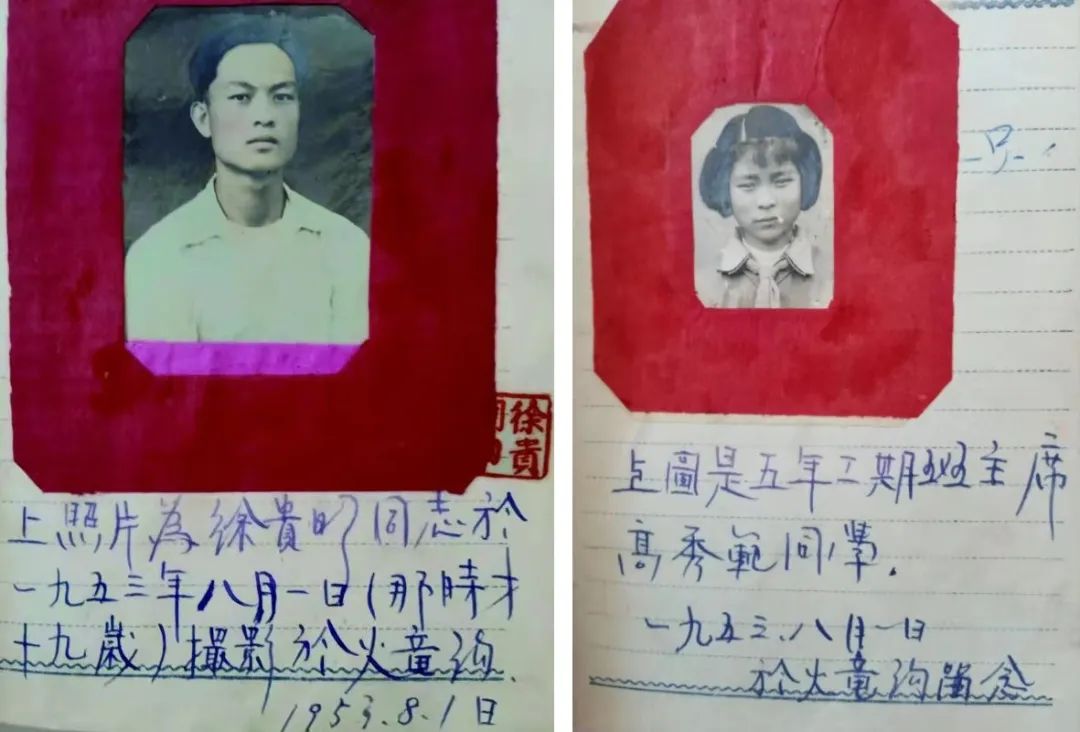 徐貴
上照片為徐貴明同志於
一九五三年八月一日(那時才
十九歲)撮影於火童溝.
1953.8.1日
上圖是五年二期班主席
高秀範同學.
一九五三.八月一日
於火童溝留念